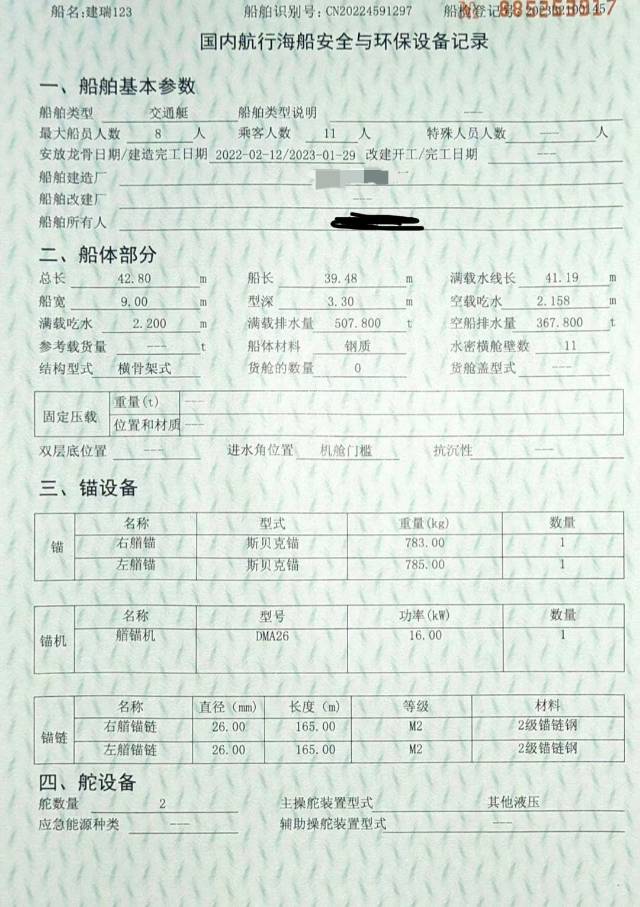 船名:建瑞123 船舶识别号:CN20224591297
国内航行海船安全与环保设备记录
一、船舶基本参数
船舶类型 交通艇 船舶类型说明 ---
最大船员人数 8 人 乘客人数 11 人 特殊人员人数 --- 人
安放龙骨日期/建造完工日期 2022-02-12/2023-01-29 改建开工/完工日期 ---
船舶建造厂
船舶改建厂 ---
船舶所有人
二、船体部分
总长 42.80 m 船长 39.48 m 满载水线长 41.19 m
船宽 9.00 m 型深 3.30 m 空载吃水 2.158 m
满载吃水 2.200 m 满载排水量 507.800 t 空船排水量 367.800 t
参考载货量 --- t 船体材料 钢质 水密横舱壁数 11
结构型式 横骨架式 货舱的数量 0 货舱盖型式 ---
固定压载 重量(t) ---
位置和材质 ---
双层底位置 --- 进水角位置 机舱门槛 抗沉性 ---
三、锚设备
锚 名称 型式 重量(kg) 数量
右艏锚 斯贝克锚 783.00 1
左艏锚 斯贝克锚 785.00 1
锚机 名称 型号 功率(kW) 数量
艏锚机 DMA26 16.00 1
锚链 名称 直径(mm) 长度(m) 等级 材料
右艏锚链 26.00 165.00 M2 2级锚链钢
左艏锚链 26.00 165.00 M2 2级锚链钢
四、舵设备
舵数量 2 主操舵装置型式 其他液压
应急能源种类 --- 辅助操舵装置型式 ---